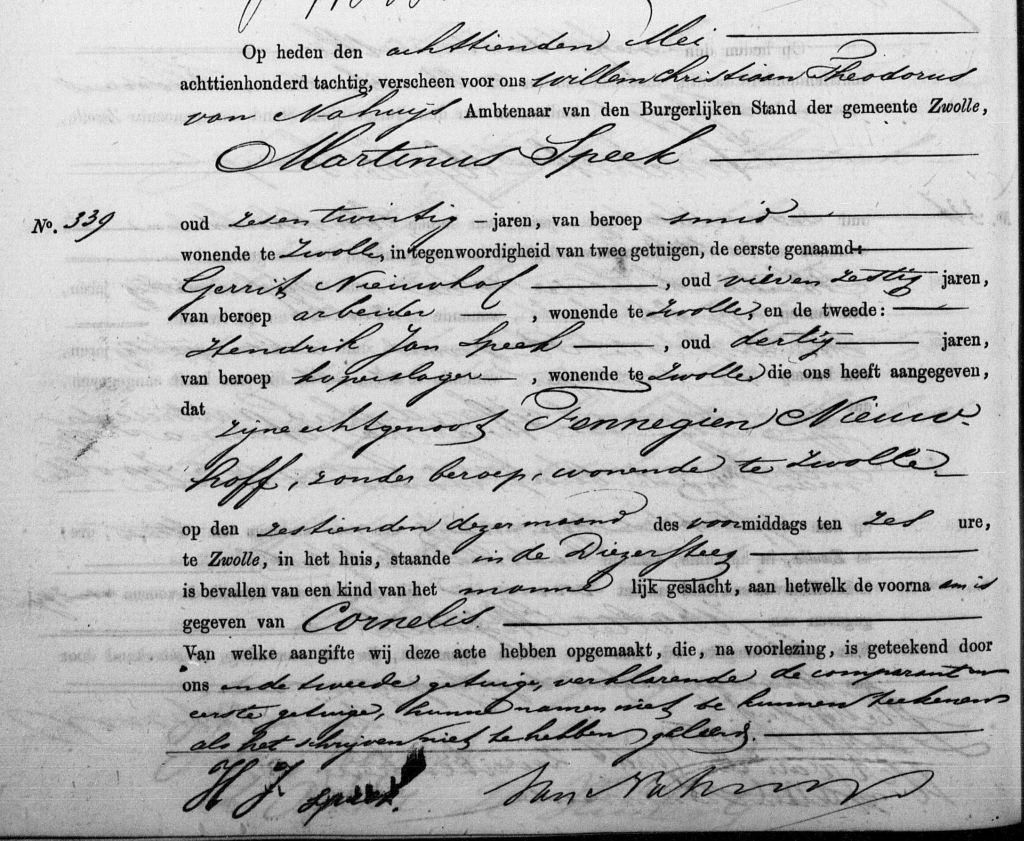 Op heden den achttienden Mei
achttienhonderd tachtig, verscheen voor ons Willem Christiaan Theodorus
van Nahuijs Ambtenaar van den Burgerlijken Stand der gemeente Zwolle,
Martinus Speek
No. 339
oud zesentwintig jaren, van beroep smid
wonende te Zwolle, in tegenwoordigheid van twee getuigen, de eerste genaamd:
Gerrit Nieuwhof, oud vierenzestig jaren,
van beroep arbeider, wonende te Zwolle, en de tweede:
Hendrik Jan Speek, oud dertig jaren,
van beroep koperslager, wonende te Zwolle, die ons heeft aangegeven,
dat
zijne echtgenoot Fennegien Nieuw-
hoff, zonder beroep, wonende te Zwolle
op den zestienden dezer maand des voormiddags ten zes ure,
te Zwolle, in het huis, staande in de Diezersteeg
is bevallen van een kind van het manne lijk geslacht, aan hetwelk de voorna am is
gegeven van Cornelis.
Van welke aangifte wij deze acte hebben opgemaakt, die, na voorlezing, is geteekend door
ons en de tweede getuige, verklarende de comparant en
eerste getuige, hunne namen niet te kunnen teekenen
als het schrijven niet te hebben geleerd.
H J Speek. Van Nahuijs